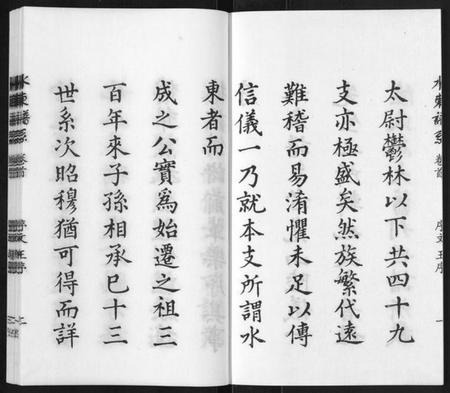 水東譜系 卷首 序文 王序 一
太尉鬱林以下共四十九
支亦極盛矣然族繁代遠
難稽而易淆懼未足以傳
信儀一乃就本支所謂水
東者而
成之公實爲始遷之祖三
百年來子孫相承已十三
世系次昭穆猶可得而詳
水東譜系 卷首 序文 王序